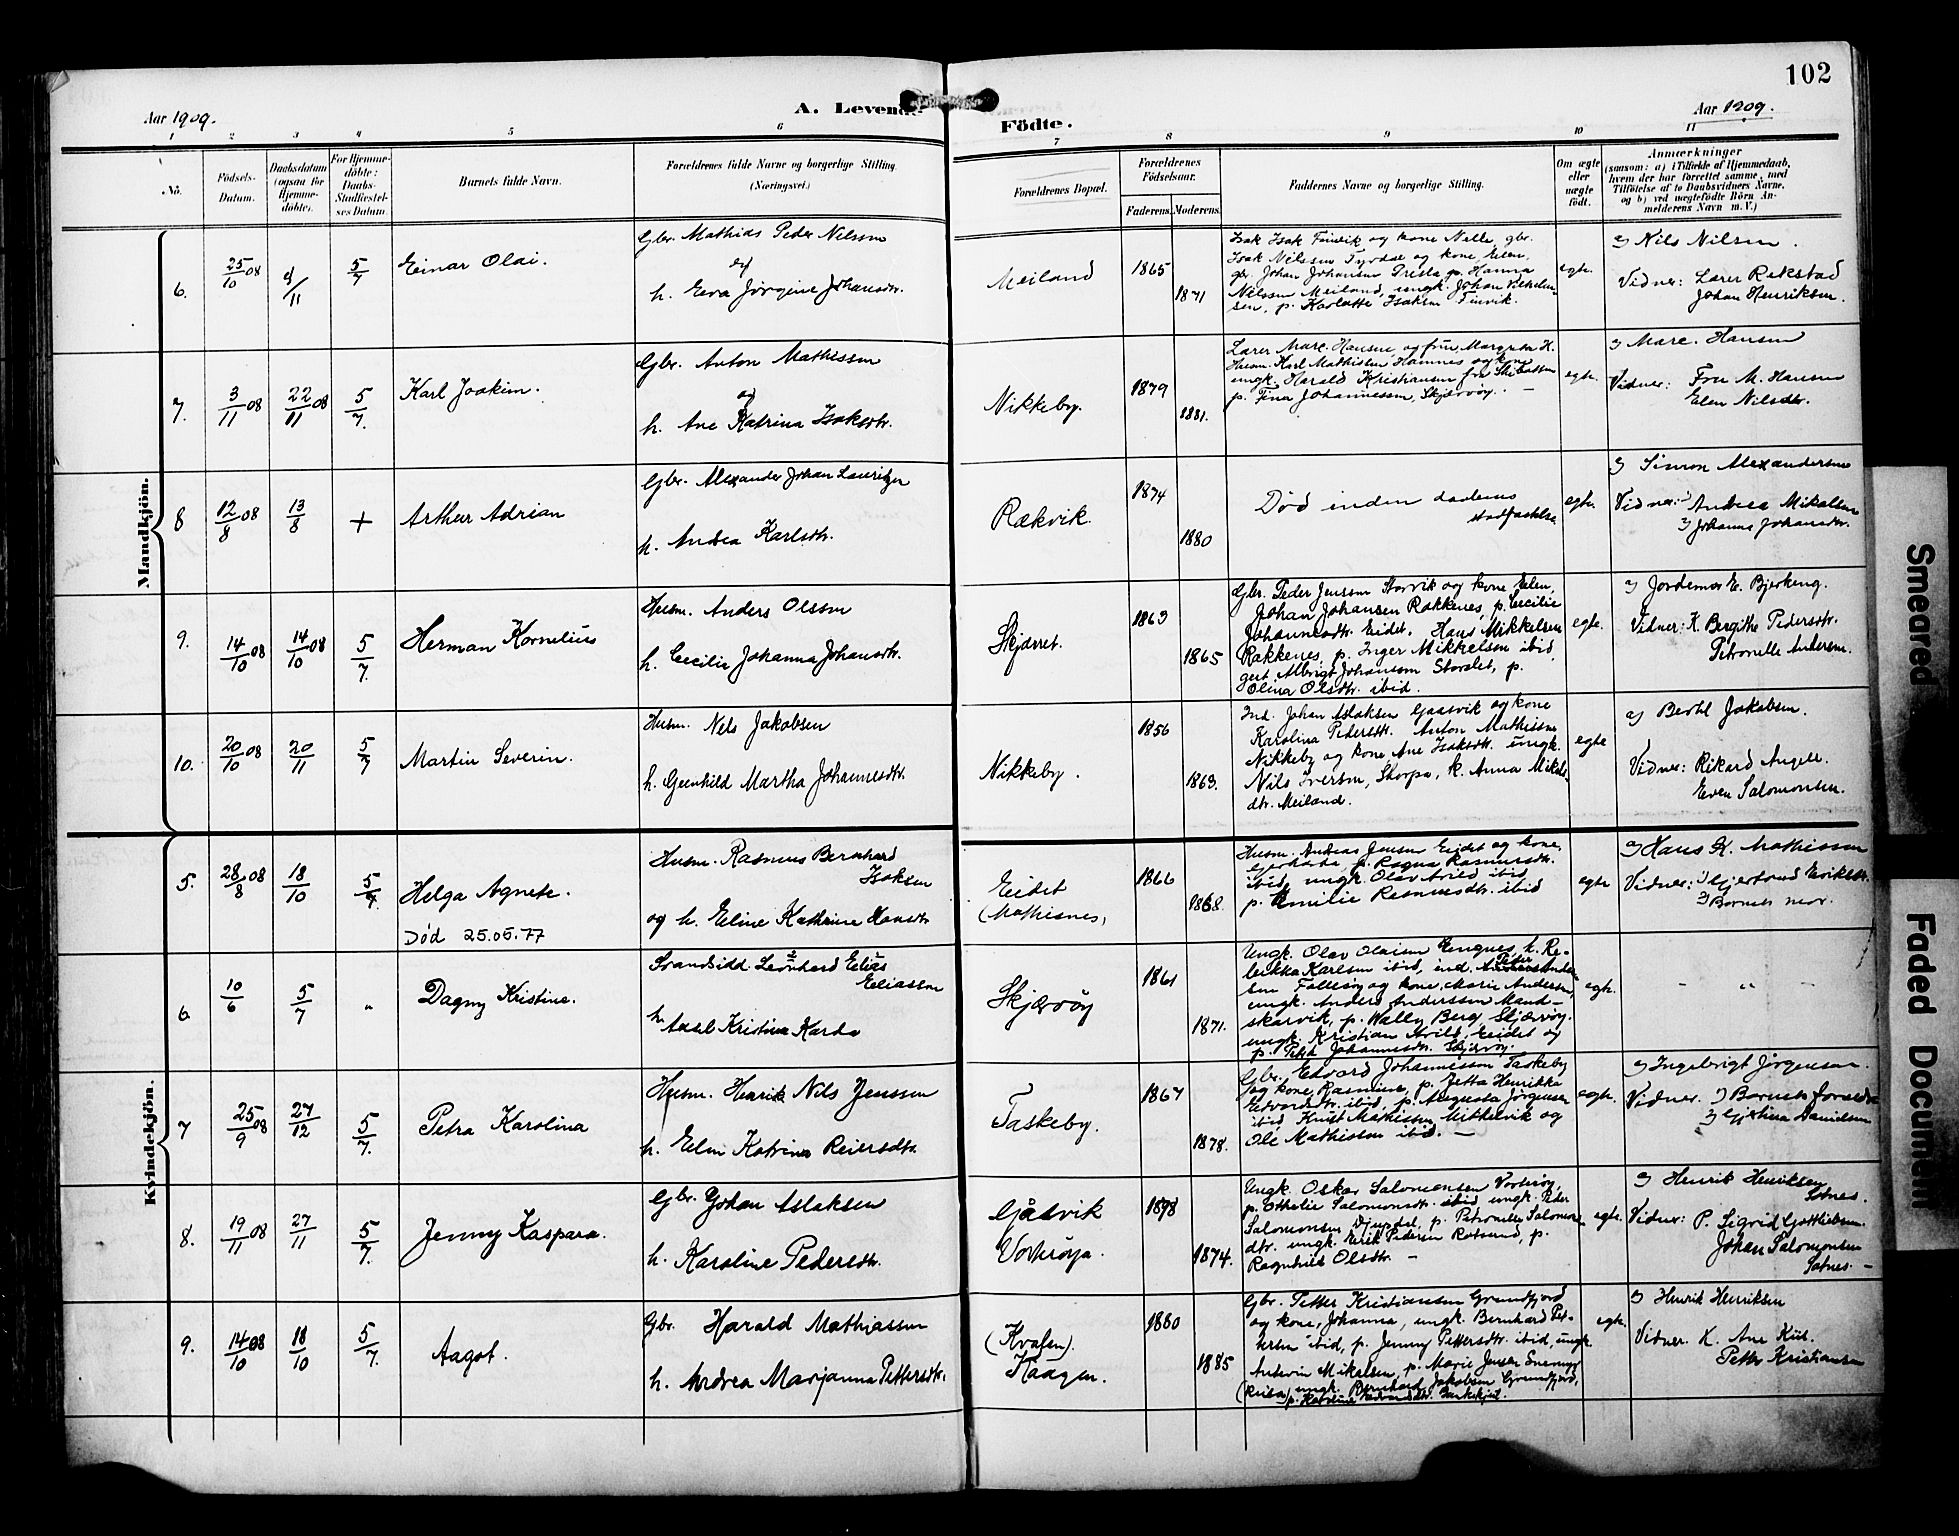 102
Aar 1909.
A. Levende
Födte.
Aar 1909.
1 2 3 4 5 6 7 8 9 10 11
No.
Födsels-
Datum.
Daabsdatum
(ogsaa for
Hjemme-
döbte).
For Hjemme-
döbte:
Daabs-
Stadfæstel-
ses Datum.
Barnets fulde Navn.
Forældrenes fulde Navne og borgerlige Stilling.
(Næringsvei.)
Forældrenes Bopæl.
Forældrenes
Födselsaar.
Faderens. Moderens.
Faddernes Navne og borgerlige Stilling.
Om ægte
eller
uægte
födt.
Anmærkninger
(saasom: a) i Tilfælde af Hjemmedaab,
hvem der har forrettet samme, med
Tilföielse af to Daabsvidners Navne,
og b) ved uægtefödte Börn An-
melderens Navn m. V.)
Mandkjön.
6. 25/10 08 /11 5/7 Einar Olai.
Gbr. Mathias Peder Nilssen
og
h. Eva Jørgine Johansdtr.
Meiland 1865 1871
Isak Isak Finvik og kone Nelle, gbr.
Isak Nilssen og kone Elen,
gbr. Johan Johansen p. Hanna
Nilssen Meiland, ungk. Johan Vilhelm-
sen, p. Karlotte Isaksen Finvik.
egte.
a) Nils Nilsen.
Vidner: Lærer Rekstad
Johan Henriksen.
7. 3/11 08 22/11 08 5/7. Karl Joakim.
Gbr. Anton Mathissen
og
h. Ane Katrina Isaksdtr.
Nikkeby. 1879 1881.
Lærer Marc. Hansen og frue, Margrete H.
Husm. Karl Mathisen Hamnes og kone
ungk. Harald Kristiansen fra Skibotten
p. Fina Johannessen, Skjærvøy. —
egte.
a) Marc. Hansen
Vidner: Fru M. Hansen
Elen Nilsdtr.
8 12/8 08 13/8 + Arthur Adrian
Gbr. Alexander Johan Lauritzen
h. Andrea Karlsdtr.
Rækvik. 1874 1880
Død inden daabens
stadfæstelse
egte.
a) Simon Alexandersen
Vidner: 1) Andrea Mikalsen
2) Johanna Johansdtr.
9. 14/10 08 14/10 08 5/7. Herman Kornelius
Husm. Anders Olssen
h. Cecilie Johanna Johansdtr.
Skjæret. 1863 1865
Gbr. Peder Jenssen Storvik og kone Elen,
Johan Johansen Rakkenes, p. Cecilie
Johannesdtr. Eidet. Hans Mikkelsen
Rakkenes, p. Inger Mikkelsen ibid,
gert. Albrigt Johanssen Storslet, p.
Olina Olsdtr. ibid.
egte.
a) Jordemor E. Bjerkeng.
Vidner: K. Bergithe Pedersdtr.
Petronelle Andersen.
10. 20/10 08 20/11 5/7 Martin Severin.
Husm. Nels Jakobsen
h. Gunhild Martha Johannesdtr.
Nikkeby. 1856 1863.
Ind. Johan Aslaksen Gaasvik og kone
Karolina Pedersdtr. Anton Mathissen
Nikkeby og kone Ane Isaksdtr. ungk.
Nils Iversen, Skorpa, k. Anna Mikals-
dtr. Meiland.
egte
a) Bertil Jakobsen.
Vidner: Rikard Angell.
Even Salomonsen.
Kvindekjön.
5. 28/8 08 18/10 5/7 Helga Agnete.
Død 25.05.77
Husm. Rasmus Bernhard
Isaksen
og h. Eline Kathrine Hansdtr.
Eidet
(Mathisnes) 1866 1868.
Husm. Andreas Jensen Eidet og kone
p. Ragna Rasmusdtr.
ibid, ungk. Olav Arild ibid
p. Emilie Rasmusdtr. ibid
egte
a) Hans K. Mathissen
Vidner: 1) Gjertrud Eriksdtr.
2) Barnets mor.
6 10/6 5/7 " Dagny Kristine.
Strandsidd. Leonhard Elias
Eliassen
h. Axel Kristina Karde
Skjærvøy 1861 1871.
Ungk. Olav Olaisen Engnes, k. Re-
bekka Karlsen ibid, ind. Peter Ander-
sen Follesøy og kone, Marie Andersen,
ungk. Anders Anderssen Maud-
skarvik, p. Wally Berg Skjærvøy.
ungk. Kristian Arild, Eidet og
p. Petra Johannesdtr. Skjærvøy.
egte.
- " -
7 25/9 08 27/12 5/7. Petra Karolina
Husm. Henrik Nils Jenssen
h. Elen Katrine Reiersdtr.
Taskeby. 1867 1878.
Gbr. Edvard Johannessen Taskeby
og kone Rasmine, p. Jetta Henrikka
Edvardsdtr. ibid, p. Augusta Jørgensen
ibid Knut Mathissen Mittelvik og
Ole Mathissen ibid. —
egte.
a) Ingebrigt Jørgensen.
Vidner. 1) Barnets forældre
2) Gjertina Danielsen
8. 19/11 08 27/11 5/7. Jenny Kaspara.
Gbr. Johan Aslaksen
h. Karoline Pedersdtr.
Gåsvik
Vorterøya. 1898 1874.
Ungk. Oskar Salomonsen Vorterøy,
p. Othelie Salomonsdtr. ibid ungk. Peder
Salomonsen Djupdal, p. Petronelle Salomons-
dtr. ungk. Erik Pedersen Rotsund, p.
Ragnhild Olsdtr. —
egte.
a) Henrik Henriksen
Sotnes.
Vidner: P. Sigrid Gottliebsen
Johan Salomonsen
Sotnes. —
9. 14/10 08 18/10 5/7. Aagot.
Gbr. Harald Mathiassen
h. Andrea Marjanna Pettersdtr.
(Kvalen)
Kaagen. 1880 1885
Gbr. Petter Kristiansen Grundfjord
og kone, Johanna, ungk. Bernhard Pet-
tersen ibid, p. Jenny Pettersdtr. ibid, ungk.
Antevin Mikalsen, p. Marie Jensen
ungk. Bernhard Jakobsen Grundfjord,
p. Karoline Edvardsdtr.
egte.
a) Henrik Henriksen
Vidner. K. Ane Kris.
Petter Kristiansen
Smeared
Faded Document